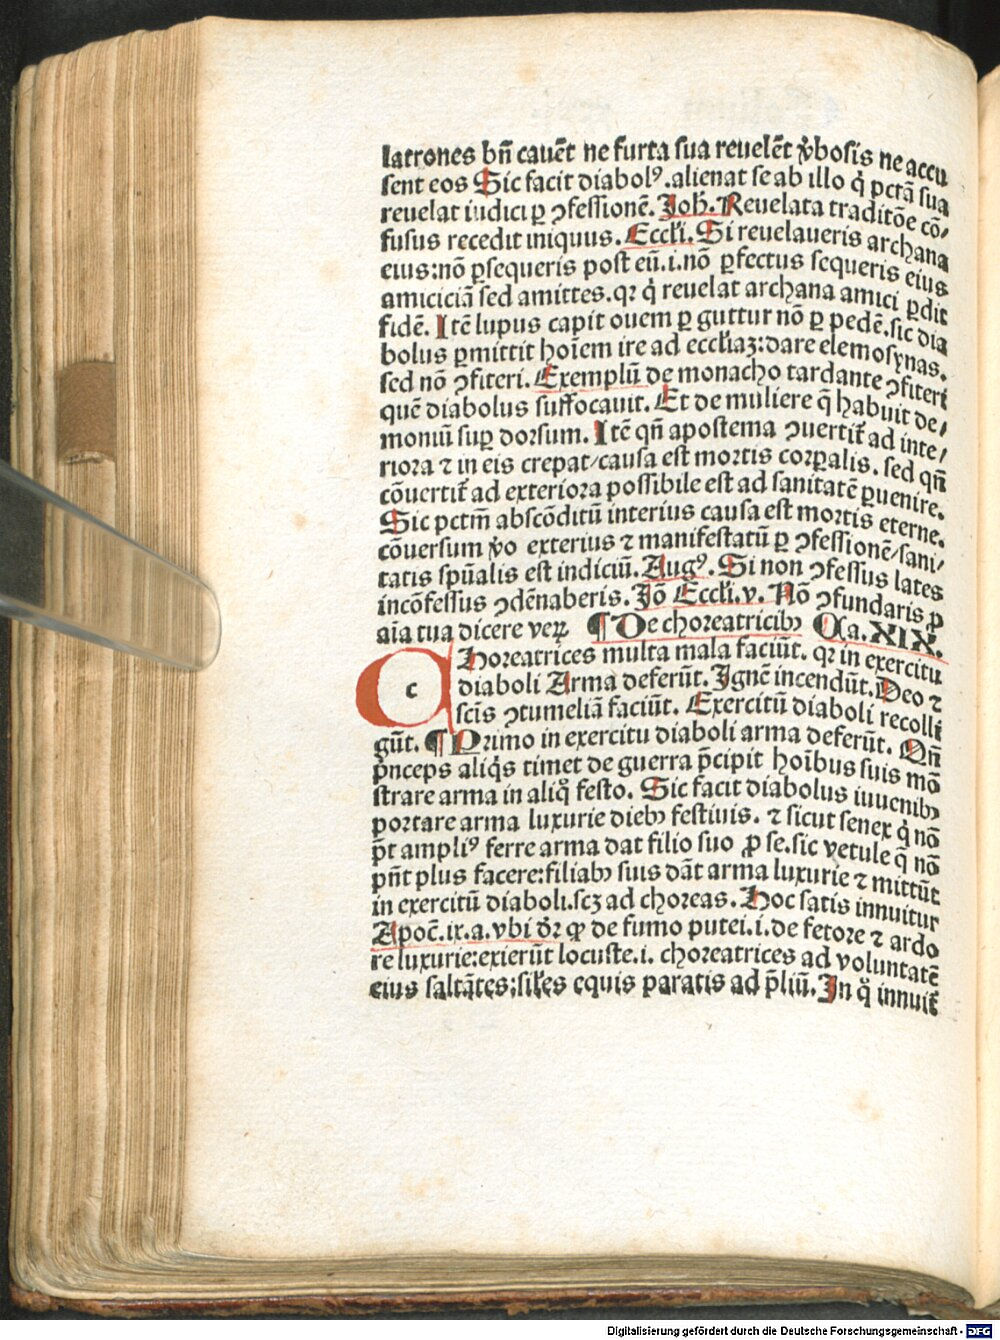 latrones bn̄ cauēt ne furta sua reuelēt v̓bosis ne accu
sent eos Sic facit diabolꝰ.alienat se ab illo q̇ pctā sua
reuelat iudici ꝑ ꝯfessionē. Joh̄. Reuelata traditōe cō⸗
fusus recedit iniquus. Eccłi. Si reuelaueris archana
eius:nō ꝑsequeris post eū.i.nō ꝑfectus sequeris eius
amiciciā sed amittes.qꝛ q̇ reuelat archana amici ꝑdit
fidē. Itē lupus capit ouem ꝑ guttur nō ꝑ pedē.sic dia
bolus ꝑmittit hoīem ire ad eccłiaꝫ:dare elemosynas.
sed nō ꝯfiteri. Exemplū de monacho tardante ꝯfiteri
quē diabolus suffocauit. Et de muliere q̄ habuit de⸗
moniū suꝑ dorsum. Itē qn̄ apostema ꝯuertit̄ ad inte⸗
riora ⁊ in eis crepat/causa est mortis corꝑalis. sed qn̄
cōuertit̄ ad exteriora possibile est ad sanitatē ꝑuenire.
Sic pctm̄ abscōditū interius causa est mortis eterne.
cōuersum v̓o exterius ⁊ manifestatū ꝑ ꝯfessionē/sani⸗
tatis spūalis est indiciū. Augꝰ. Si non ꝯfessus lates
incōfessus ꝯdēnaberis. Jō Eccłi.v. Nō ꝯfundaris ꝓ
aīa tua dicere veꝝ ¶ De choreatricibꝫ Ca. XIX.
c Horeatrices multa mala faciūt. qꝛ in exercitu
diaboli Arma deferūt. Ignē incendūt. Deo ⁊
scīs ꝯtumeliā faciūt. Exercitū diaboli recolli
gūt. ¶ Primo in exercitu diaboli arma deferūt. Qn̄
pͥnceps aliq̇s timet de guerra p̄cipit hoībus suis mō
strare arma in aliq̊ festo. Sic facit diabolus iuuenibꝫ
portare arma luxurie diebꝫ festiuis. ⁊ sicut senex q̇ nō
p̄t ampliꝰ ferre arma dat filio suo ꝓ se.sic vetule q̄ nō
pn̄t plus facere:filiabꝫ suis dāt arma luxurie ⁊ mittūt
in exercitū diaboli.scꝫ ad choreas. Hoc satis innuitur
Apoc̄.ix.a.vbi dr̄ ꝙ de fumo putei.i.de fetore ⁊ ardo
re luxurie:exierūt locuste.i. choreatrices ad voluntatē
eius saltātes:siłes equis paratis ad p̄liū. In q̊ innuit̄
Digitalisierung gefördert durch die Deutsche Forschungsgemeinschaft - DFG